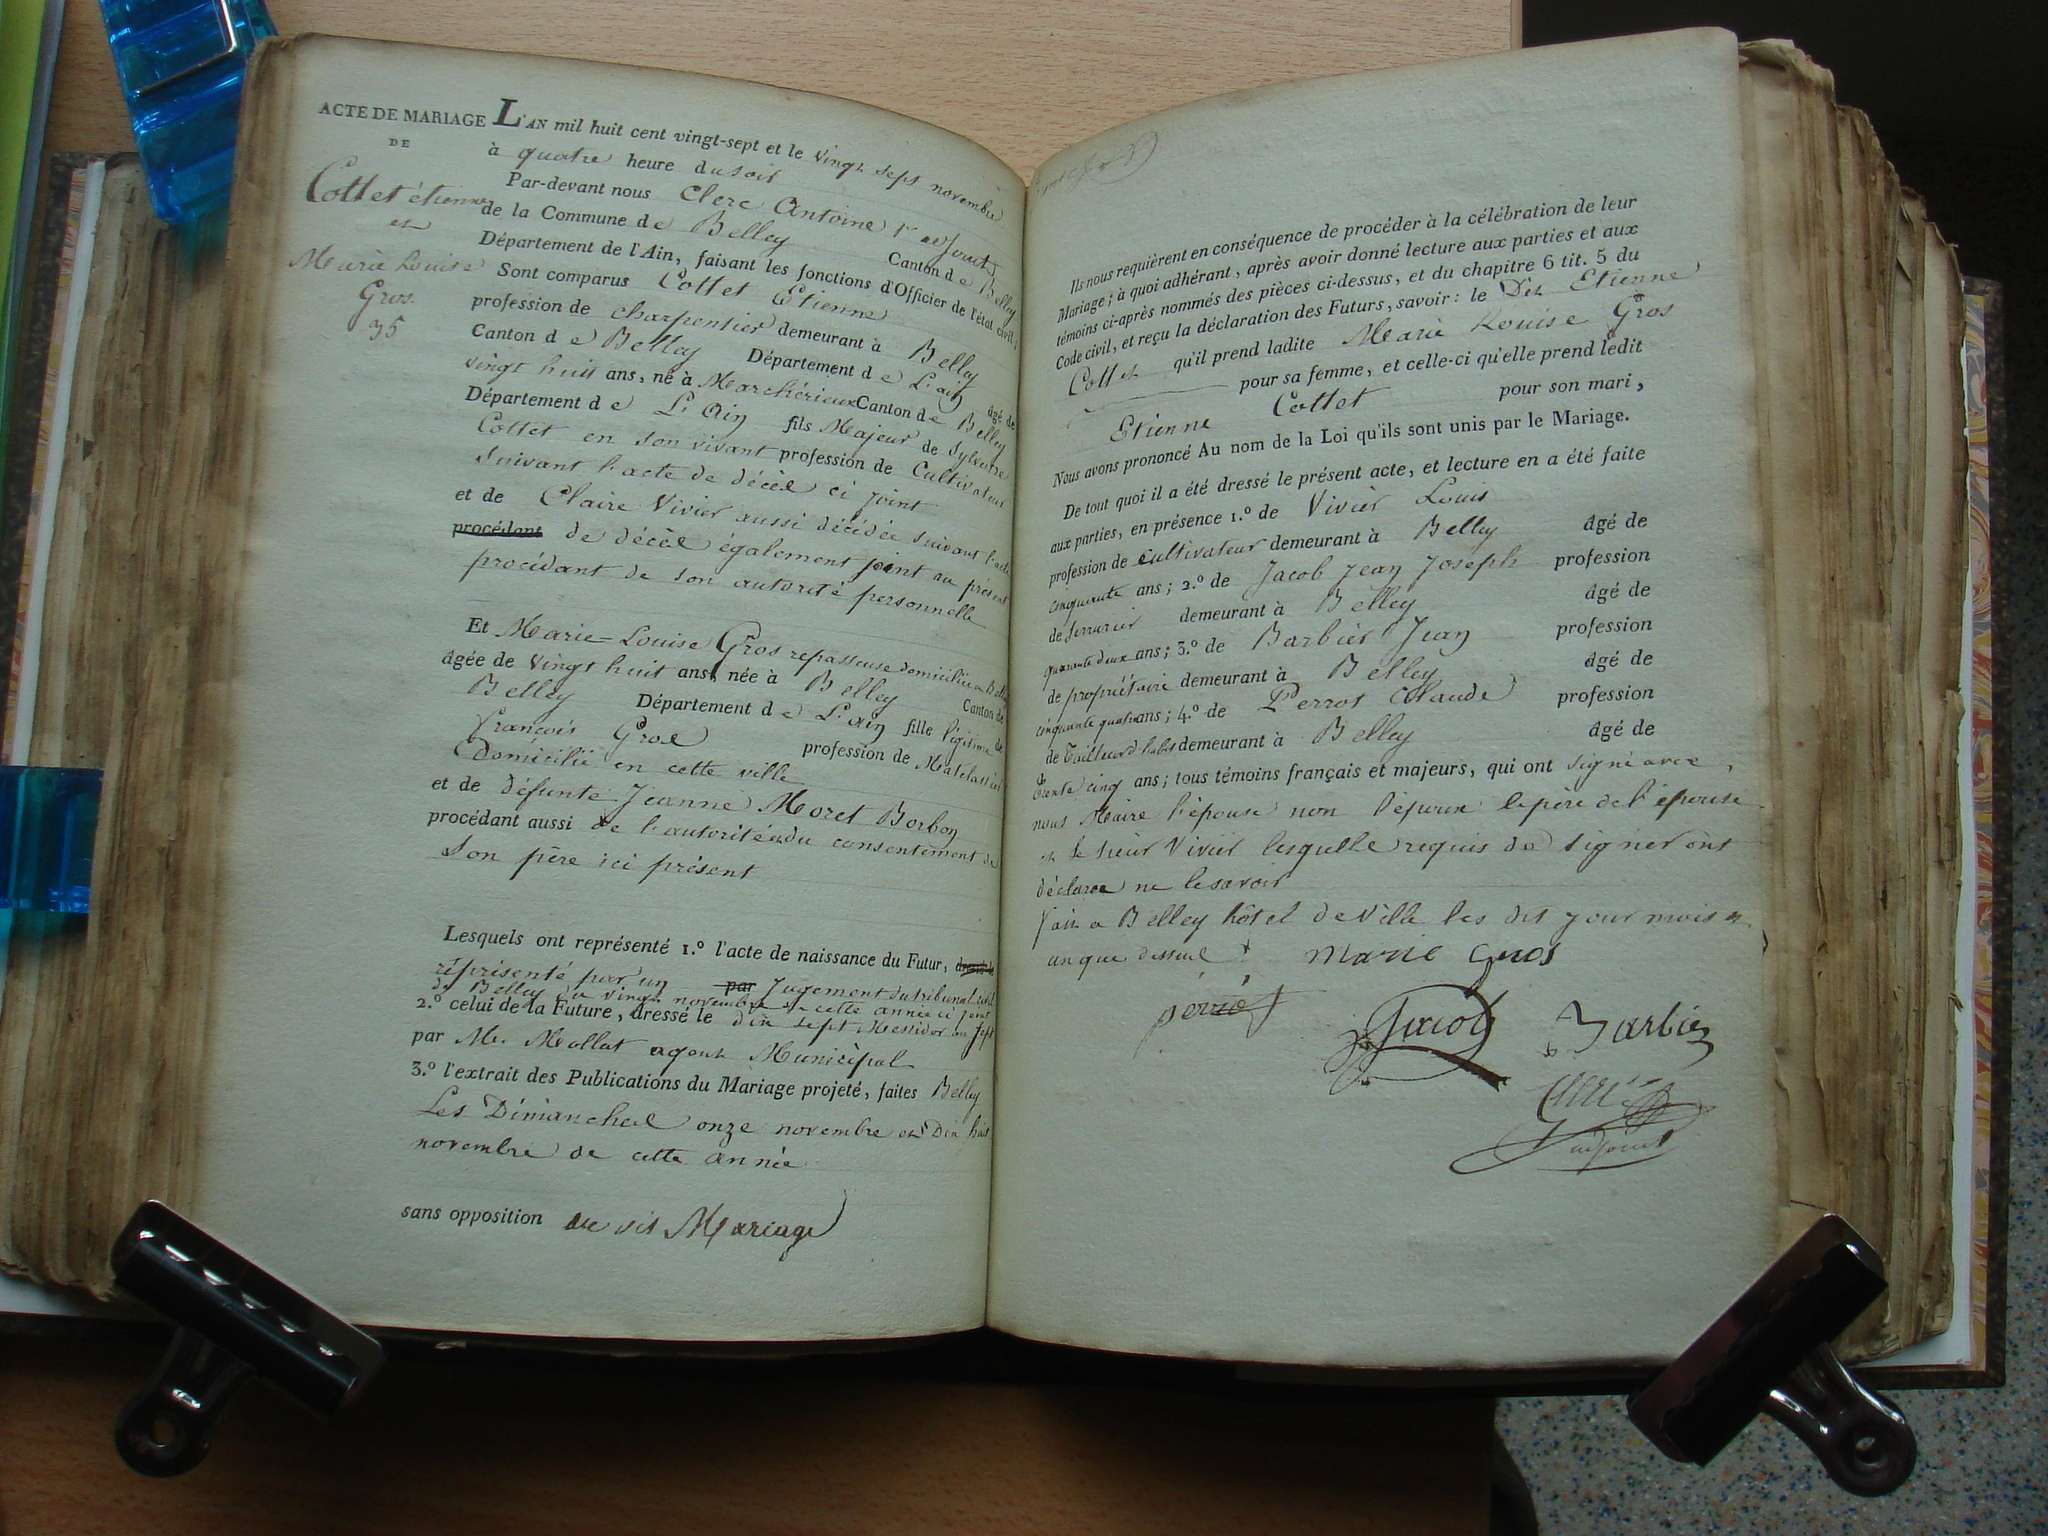 ACTE DE MARIAGE
DE
Collet étienne
et
Marie Louise
Gros
35
L'AN mil huit cent vingt-sept et le vingt sept novembre
à quatre heure du soir
Par-devant nous Clerc Antoine 1er adjoint
de la Commune de Belley Canton de Belley
Département de l'Ain, faisant les fonctions d'Officier de l'état civil;
Sont comparus Collet Etienne
profession de charpentier demeurant à Belley
Canton de Belley Département de L'ain âgé de
vingt huit ans, né à Marchérieux Canton de Belley
Département de L'Ain fils Majeur de Sylvestre
Collet en son vivant profession de Cultivateur
suivant l'acte de décès ci joint
et de Claire Vivier aussi décédée suivant l'acte
procédant de décès également joint au présent
procédant de son autorité personnelle
Et Marie Louise Gros repasseuse domiciliée a Belley
âgée de vingt huit ans, née à Belley Canton de
Belley Département de L'ain fille légitime de
francois Gros profession de Matelassier
Domicilié en cette ville
et de défunte Jeanne Moret Borbon
procédant aussi de l'autorité du consentement de
son père ici présent
Lesquels ont représenté 1.º l'acte de naissance du Futur,
réprésenté par un par Jugement du tribunal civil
de Belley du vingt novembre de cette année ci joint
2.º celui de la Future, dressé le dix sept Messidor an sept
par Mr. Mollat agent Municipal
3.º l'extrait des Publications du Mariage projeté, faites Belley
Les Dimanches onze novembre et Dix huit
novembre de cette année
sans opposition au dit Mariage
Il nous requièrent en conséquence de procéder à la célébration de leur
Mariage; à quoi adhérant, après avoir donné lecture aux parties et aux
témoins ci-après nommés des pièces ci-dessus, et du chapitre 6 tit. 5 du
Code civil, et reçu la déclaration des Futurs, savoir: le Dit Etienne
Collet qu'il prend ladite Marie Louise Gros
pour sa femme, et celle-ci qu'elle prend ledit
Etienne Collet pour son mari,
Nous avons prononcé Au nom de la Loi qu'ils sont unis par le Mariage.
De tout quoi il a été dressé le présent acte, et lecture en a été faite
aux parties, en présence 1.º de Vivier Louis
profession de cultivateur demeurant à Belley âgé de
cinquante ans; 2.º de Jacob Jean Joseph profession
de serrurier demeurant à Belley âgé de
quarante deux ans; 3.º de Barbier Jean profession
de propriétaire demeurant à Belley âgé de
cinquante quatre ans; 4.º de Perros Claude profession
de Tailleur d'habits demeurant à Belley âgé de
trente cinq ans; tous témoins français et majeurs, qui ont signé avec
nous Maire l'épouse non l'époux le père de l'épouse
et le sieur Vivier lesquelle requis de signer ont
déclaree ne le savoir
fait a Belley hôtel de Ville les dit jour mois et
an que dessus
Marie Gros
Jacob
Barbier
Clerc
adjoint